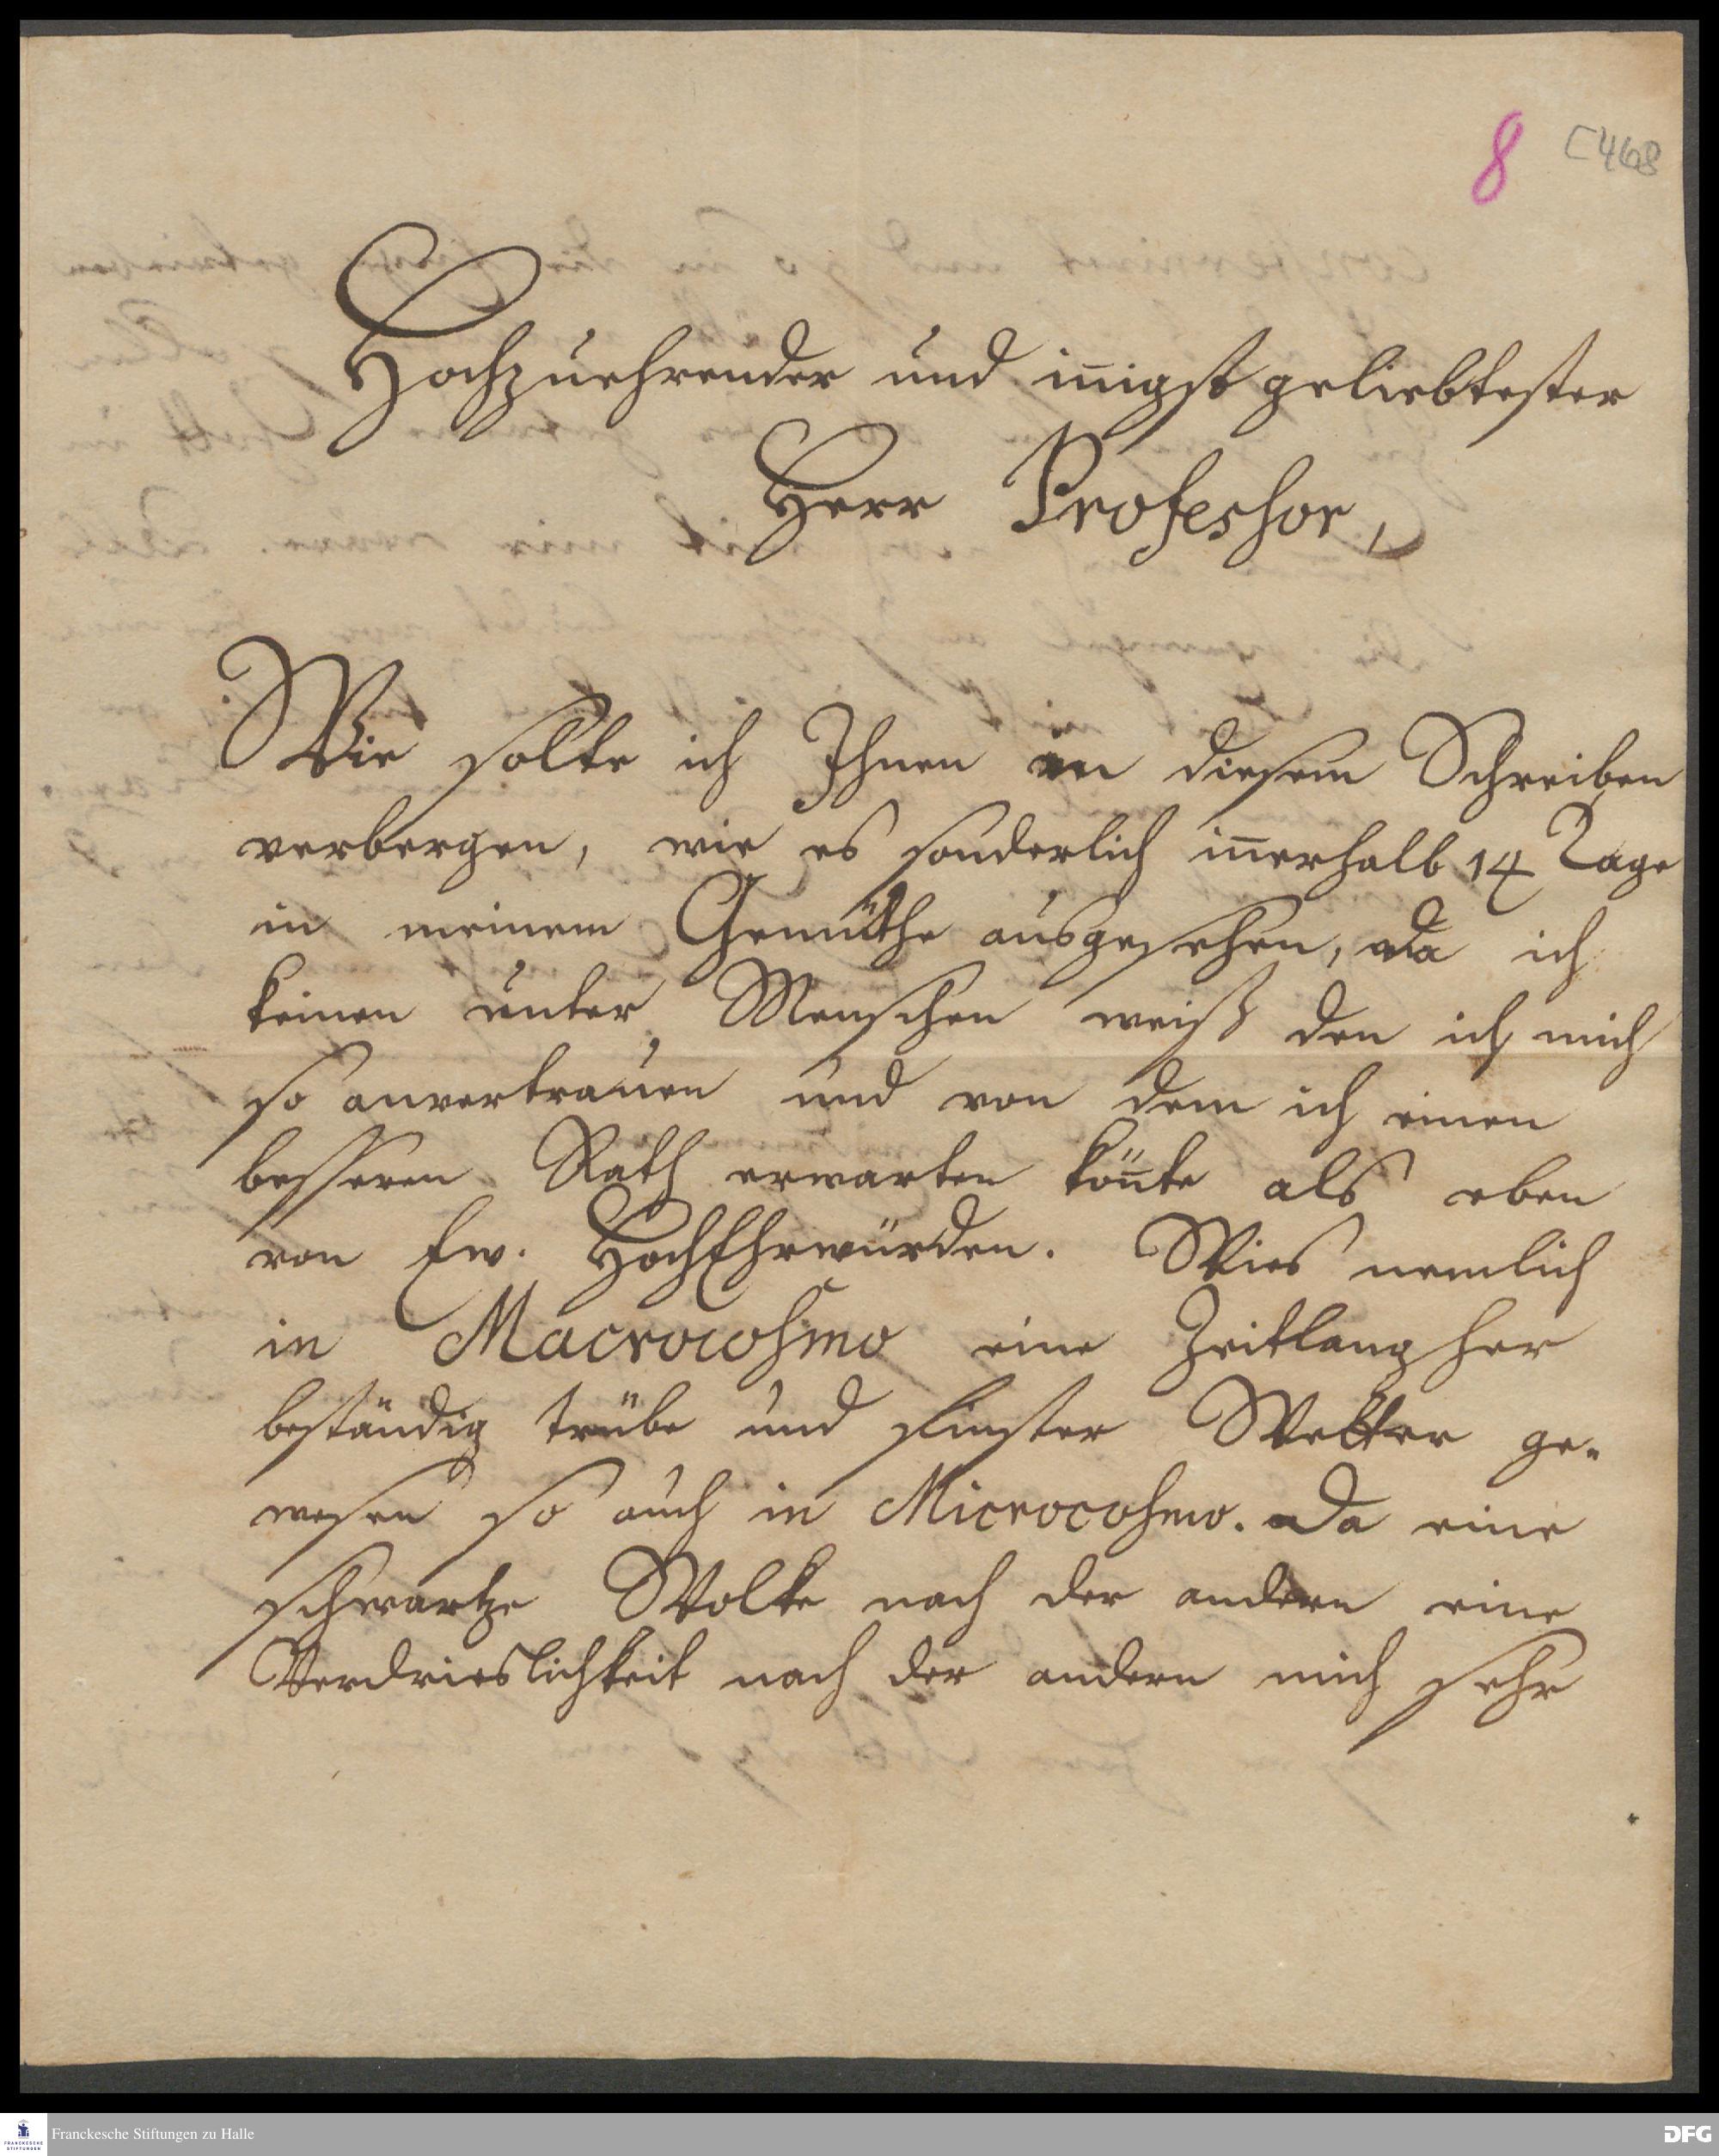 8 C 468
Hochzuehrender und iñigst geliebtester
Herr Professor,
Wie solte ich Ihnen in diesem Schreiben
verbergen, wie es sonderlich iñerhalb 14 Tage
in meinem Gemüthe ausgesehen, da ich
keinen unter Menschen weiß den ich mich
so anvertrauen und von dem ich einen
besseren Rath erwarten köñte als eben
von Ew. HochEhrwürden. Wies nemlich
in Macrocosmo eine Zeitlang her
beständig trübe und finster Wetter ge-
wesen so auch in Microcosmo. Da eine
schwartze Wolke nach der andern eine
Verdrieslichkeit nach der andern mich sehr
FRANCKESCHE STIFTUNGEN
Franckesche Stiftungen zu Halle
DFG